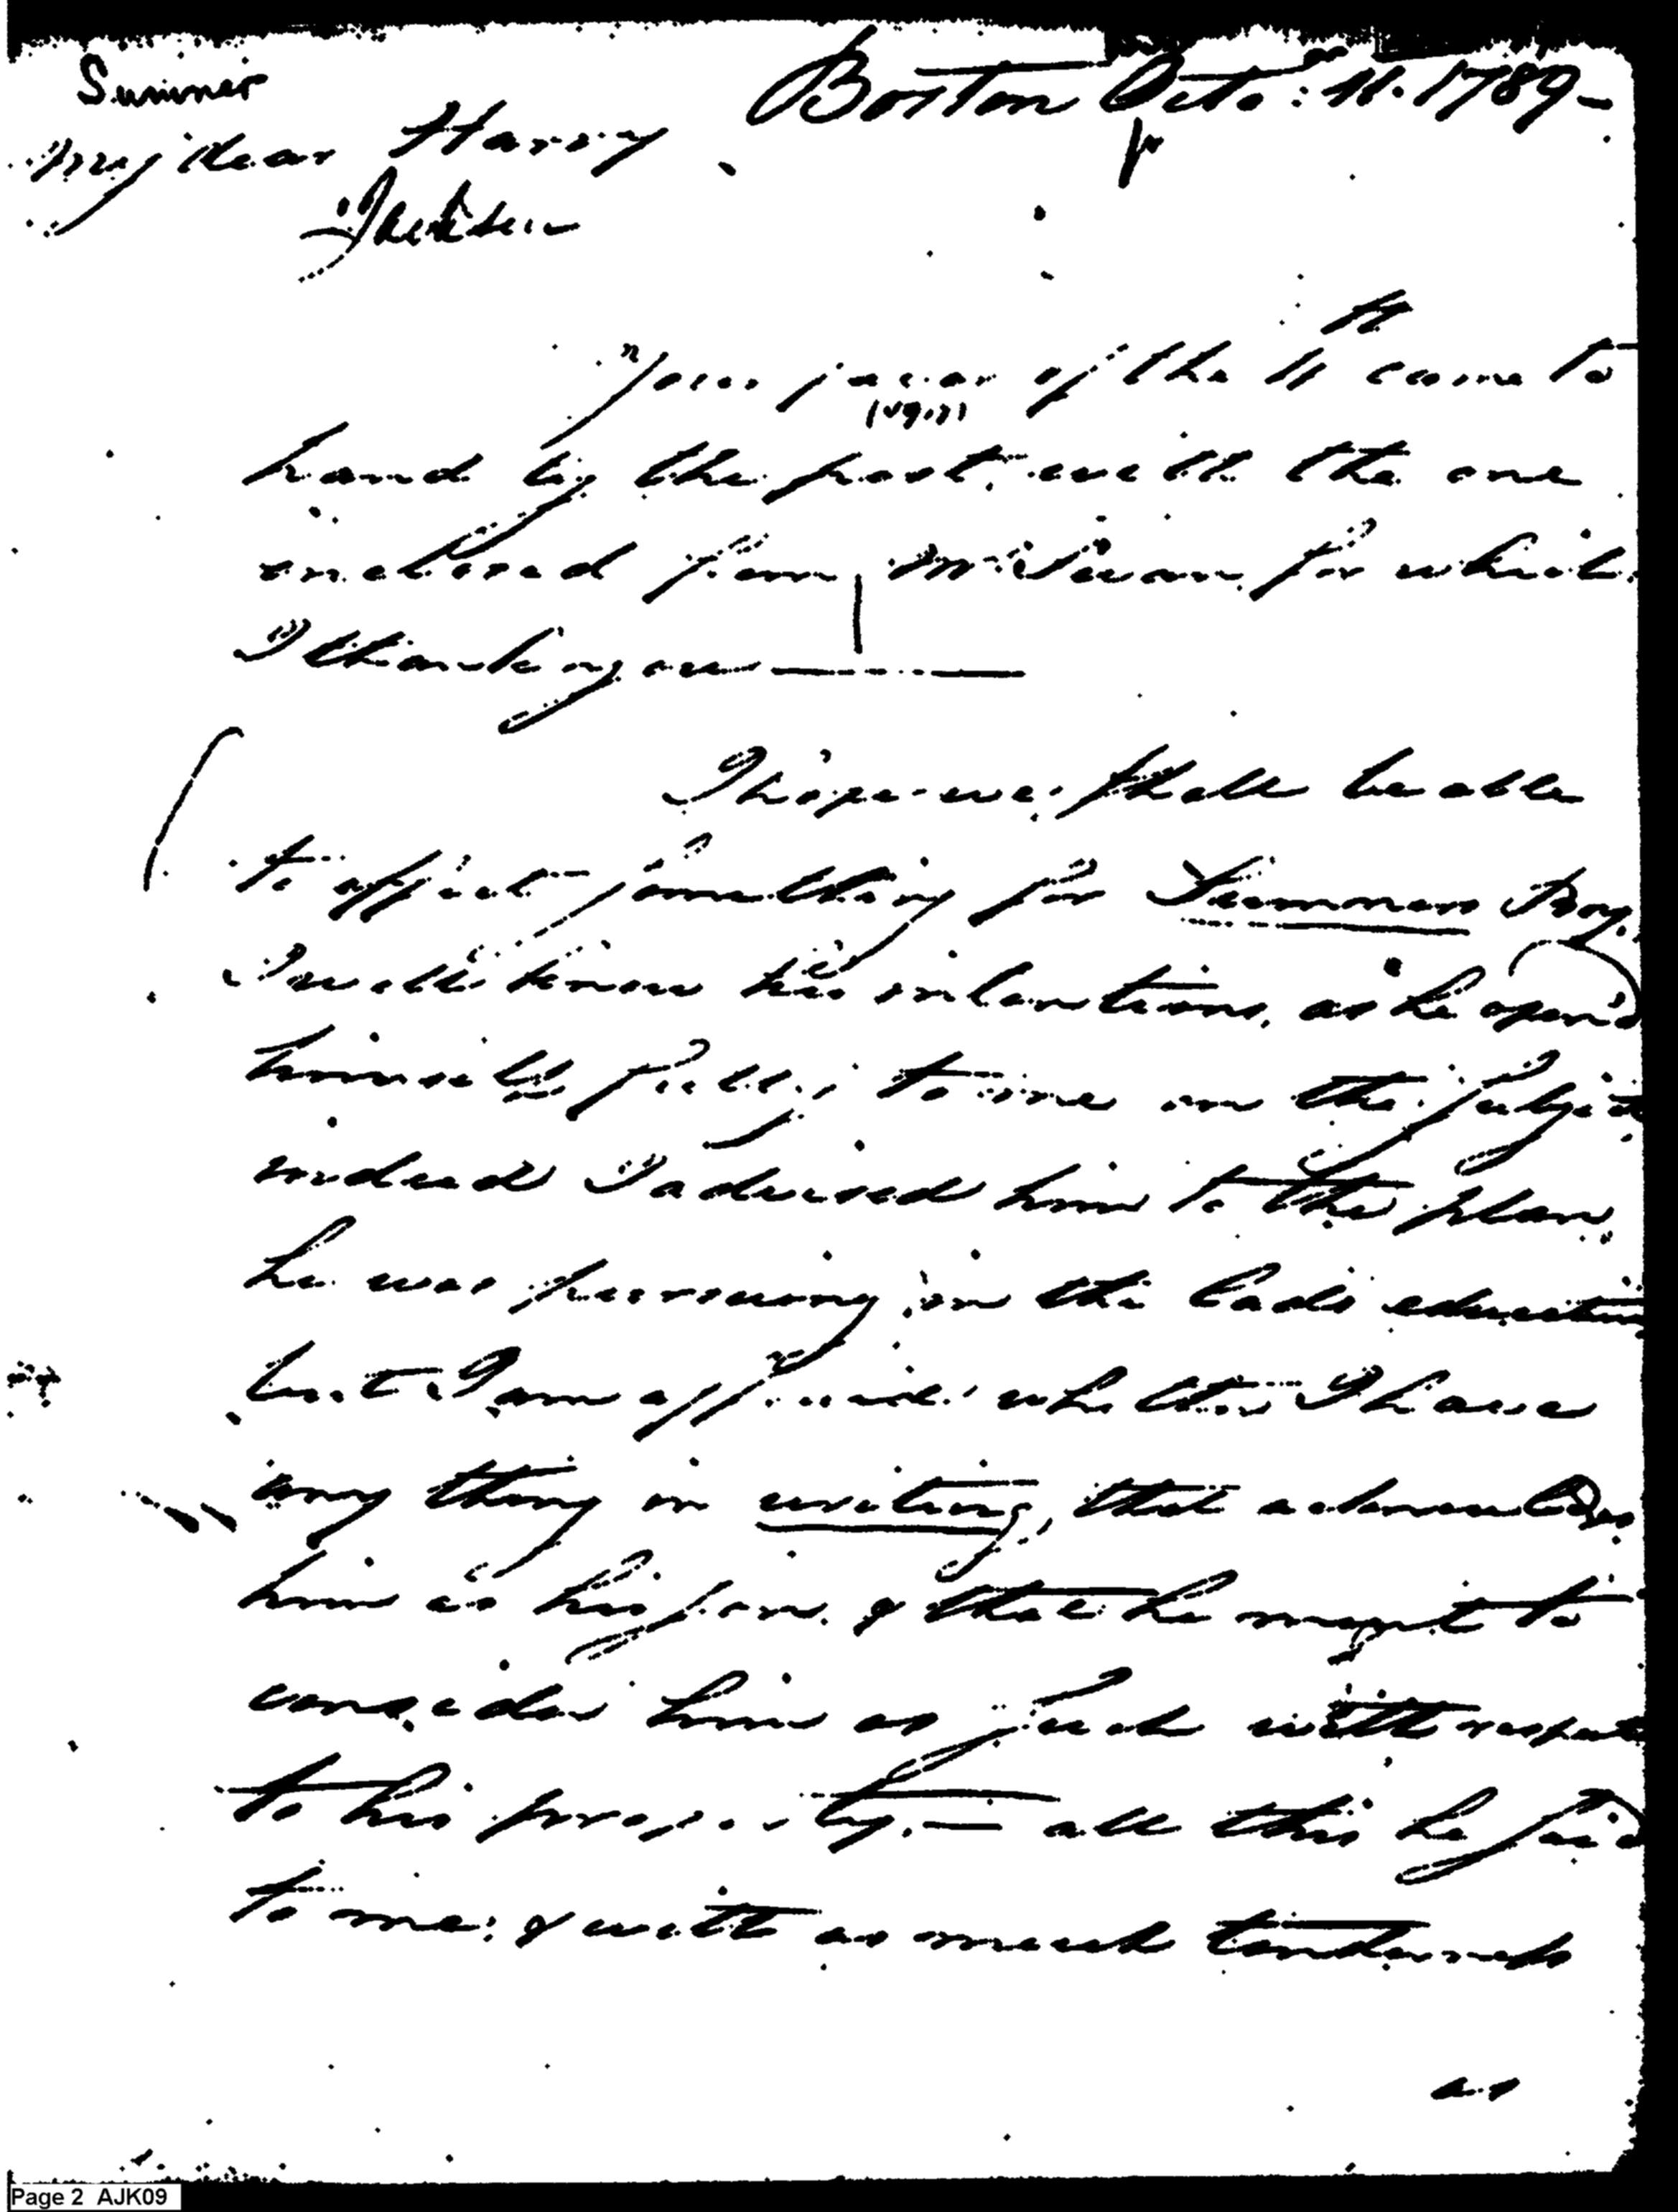 Sumner
Boston Octo: 11. 1789 —
My dear Harry
Jackson
Your favor of the 4 came to
hand by the post, with the one
enclosed from Mr Swan for which
I thank you ———
I hope we shall be able
to effect something for Sumners Boy.
I well know his intentions, as he open'd
himself fully to me on the subject
indeed I advised him to the plan
he was pursuing in the lads education
but I am affraid whether I have
any thing in writing, that acknowledges
him as his son, & that he ment to
consider him as such with respect
to his property. — all this he said
to me; & with as much tenderness
as
Page 2 AJK09